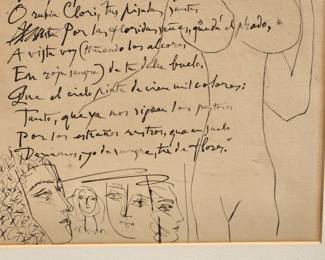 Ó rubia Clori, tus pisadas santas
Por las floridas señas, que da el prado,
A vista voy (tiñendo los alcores
En roja sangre) de tu dulce buelo,
Que el cielo pinta de cien mil colores:
Tanto, que ya nos siguen los pastores
Por los estraños rastros, que en suelo
Dexamos, yo de sangre, tú de flores."